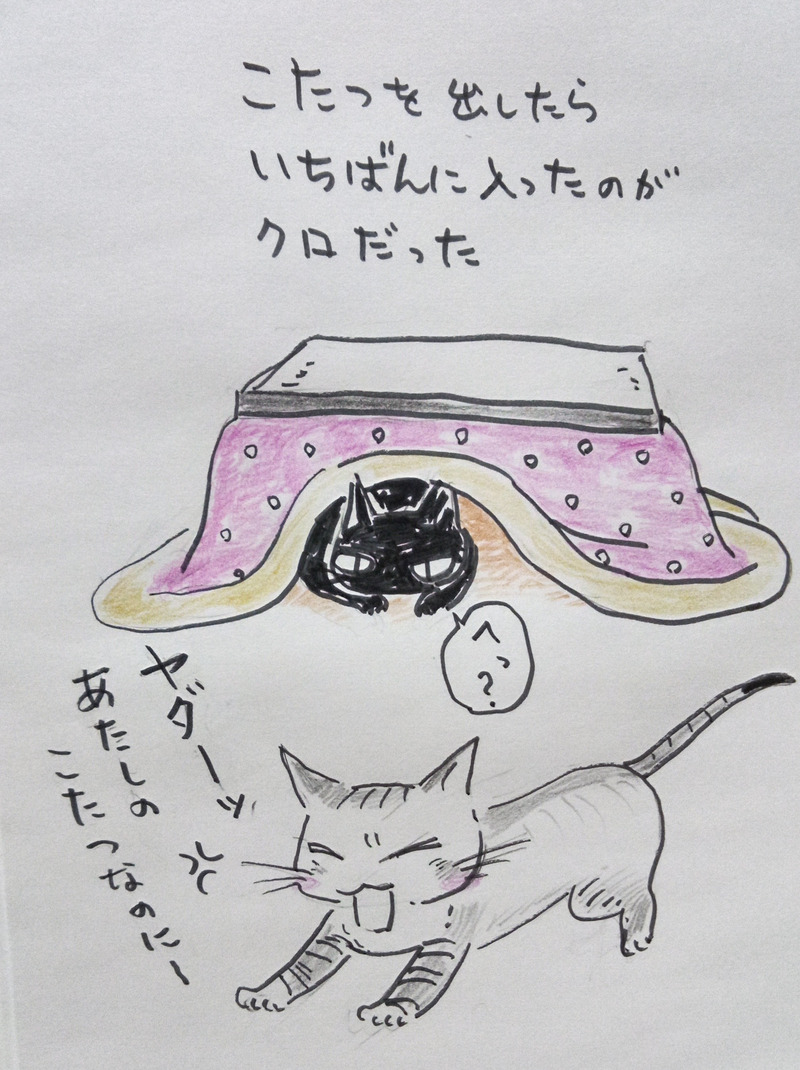 こたつを出したら
いちばんに入ったのが
クロだった
へっ?
ヤダーッ
あたしの
こたつなのにー